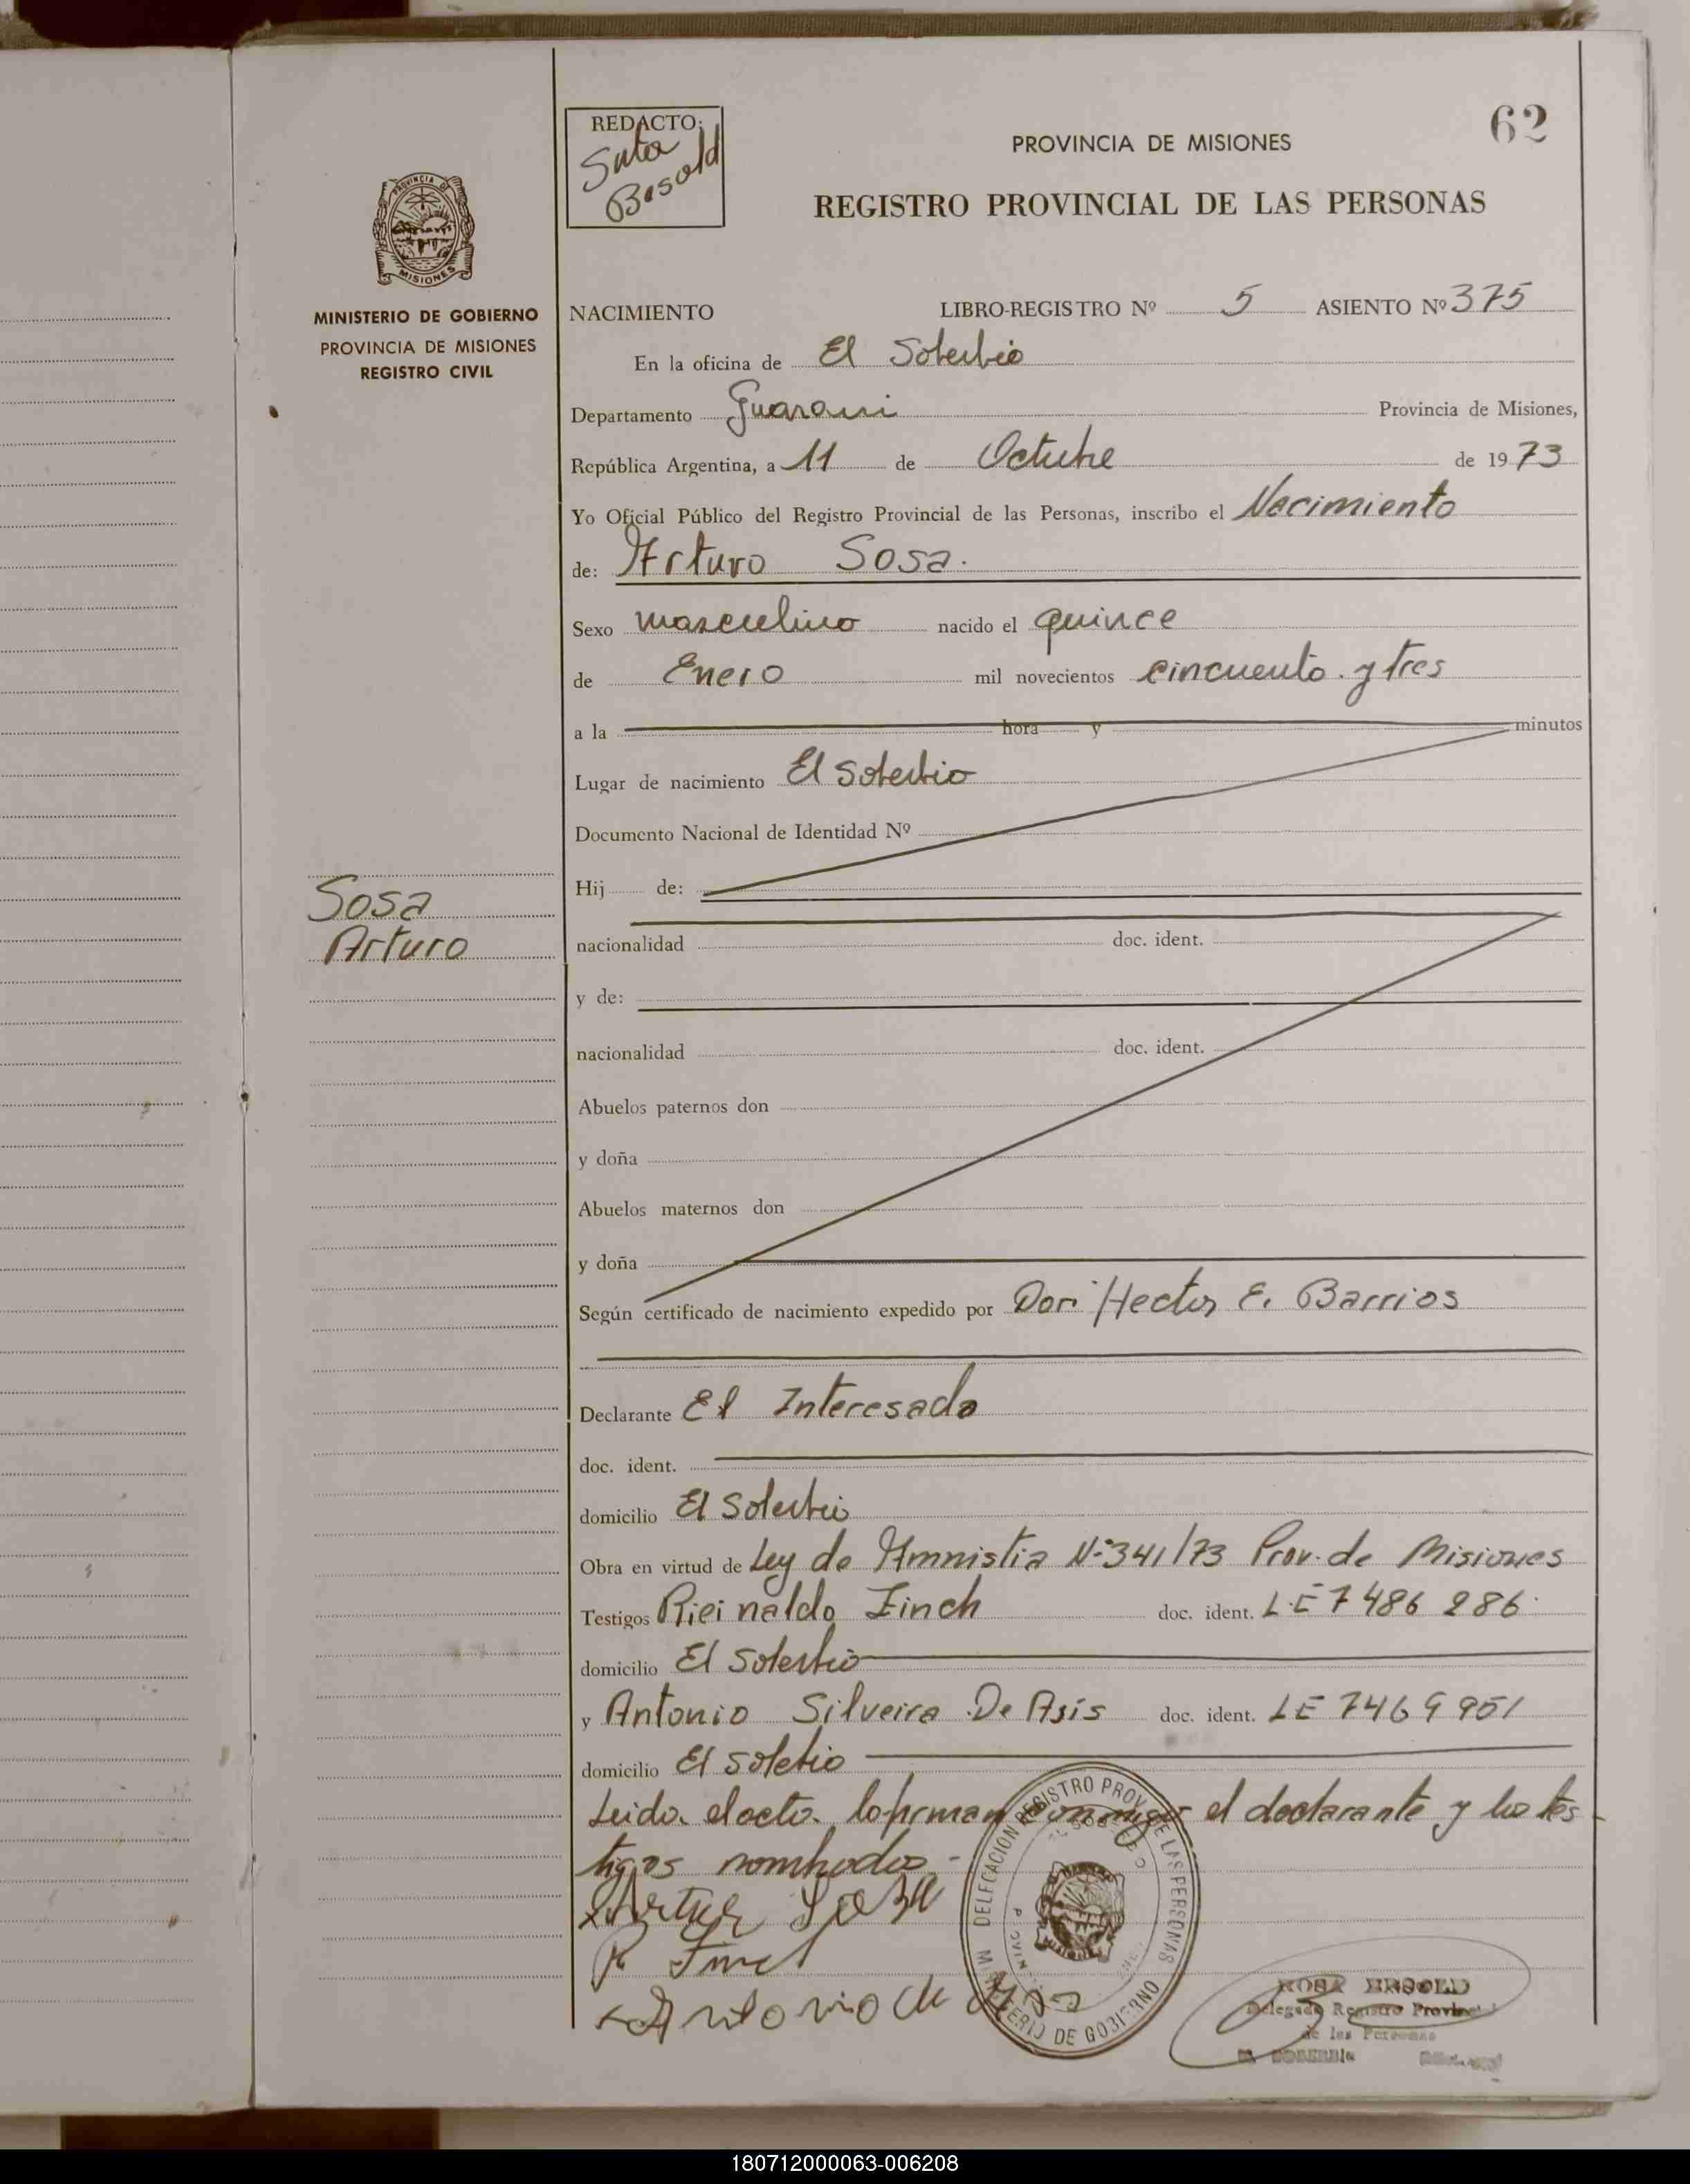 62
REDACTO:
Besold
PROVINCIA DE MISIONES
REGISTRO PROVINCIAL DE LAS PERSONAS
PROVINCIA D
MISIONES
MINISTERIO DE GOBIERNO
PROVINCIA DE MISIONES
REGISTRO CIVIL
NACIMIENTO LIBRO-REGISTRO Nº 5 ASIENTO Nº 375
En la oficina de El Soberbio
Departamento Guarani Provincia de Misiones,
República Argentina, a 11 de Octubre de 1973
Yo Oficial Público del Registro Provincial de las Personas, inscribo el Nacimiento
de: Arturo Sosa.
Sexo masculino nacido el quince
de Enero mil novecientos cincuenta y tres
a la hora y minutos
Lugar de nacimiento El Soberbio
Documento Nacional de Identidad Nº
Hij de:
Sosa
Arturo
nacionalidad doc. ident.
y de:
nacionalidad doc. ident.
Abuelos paternos don
y doña
Abuelos maternos don
y doña
Según certificado de nacimiento expedido por Don Hector E. Barrios
Declarante El Interesado
doc. ident.
domicilio El Soberbio
Obra en virtud de Ley de Amnistia Nº 341/73 Prov. de Misiones
Testigos Rieinaldo Finch doc. ident. L.E 7486286.
domicilio El Soberbio
y Antonio Silveira De Asís doc. ident. LE 7469951
domicilio El Sobebio
Leido el acto. lo firman conmigo el declarante y los tes
tigos nombrados.-
Artur Soza
R Finch
Antonio de Asis
MINISTERIO DE GOBIERNO DELEGACION REGISTRO PROV. DE LAS PERSONAS
ROSA BESOLD
Delegado Registro Provincial
de las Personas
EL SOBERBIO
180712000063-006208